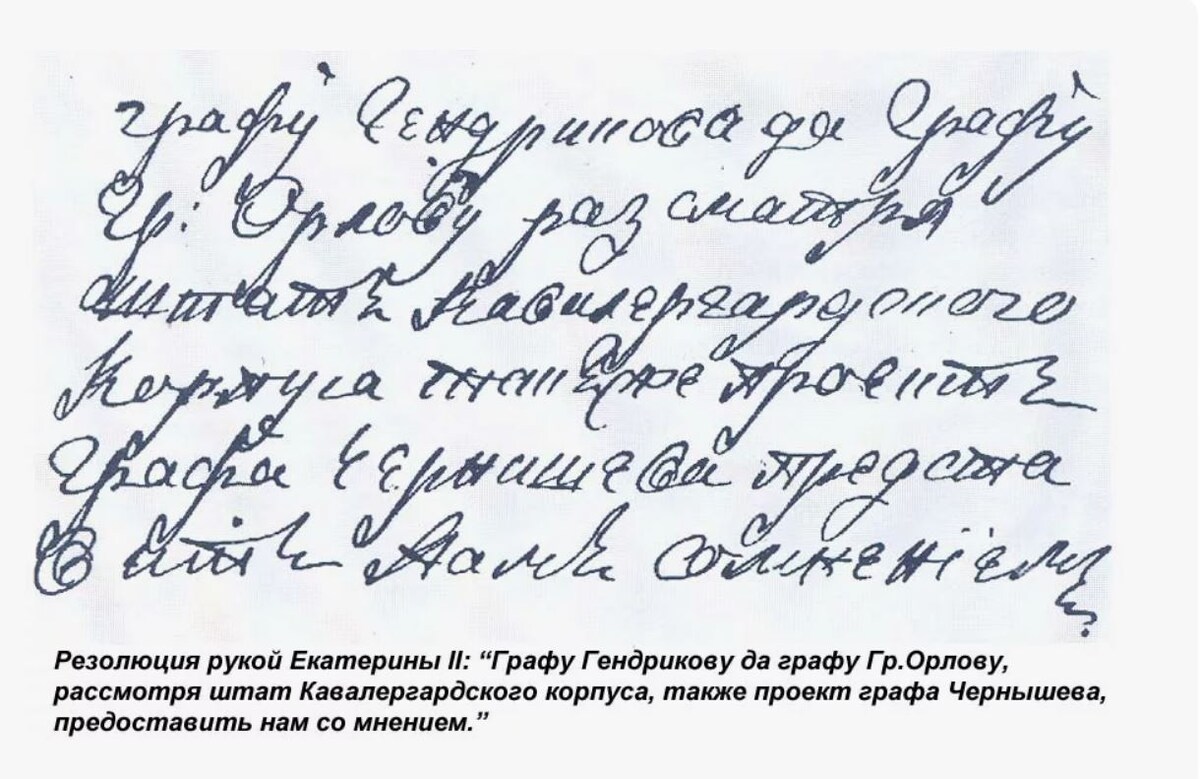 графу Гендрикова да Графу
Гр: Орлову раз сматря
штатъ Кавилергардскаго
Корпуса такъже проектъ
Графа Чернишева предста
витъ намъ сомненіемъ.
Резолюция рукой Екатерины II: “Графу Гендрикову да графу Гр.Орлову,
рассмотря штат Кавалергардского корпуса, также проект графа Чернышева,
предоставить нам со мнением.”